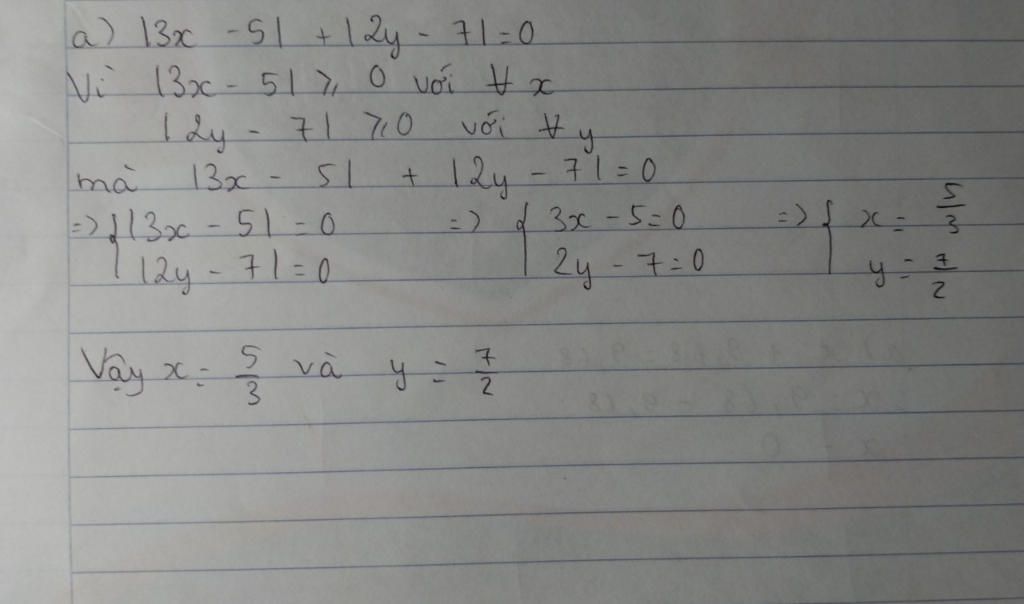 a) |3x - 5| + |2y - 7| = 0
Vì |3x - 5| ⩾ 0 với ∀ x
|2y - 7| ⩾ 0 với ∀ y
mà |3x - 5| + |2y - 7| = 0
=> { |3x - 5| = 0 => { 3x - 5 = 0 => { x = 5/3
|2y - 7| = 0 2y - 7 = 0 y = 7/2
Vậy x = 5/3 và y = 7/2